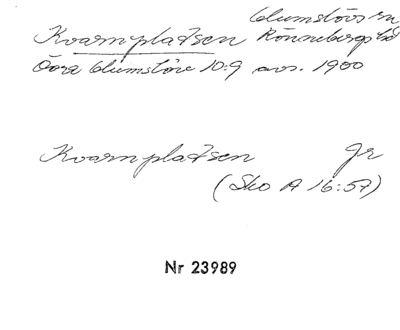 Glumslövs sn
Kvarnplatsen Rönnebergs hd
Övra Glumslöv 10:9 avs. 1900
Kvarnplatsen Jr
(Sko A 16:57)
Nr 23989